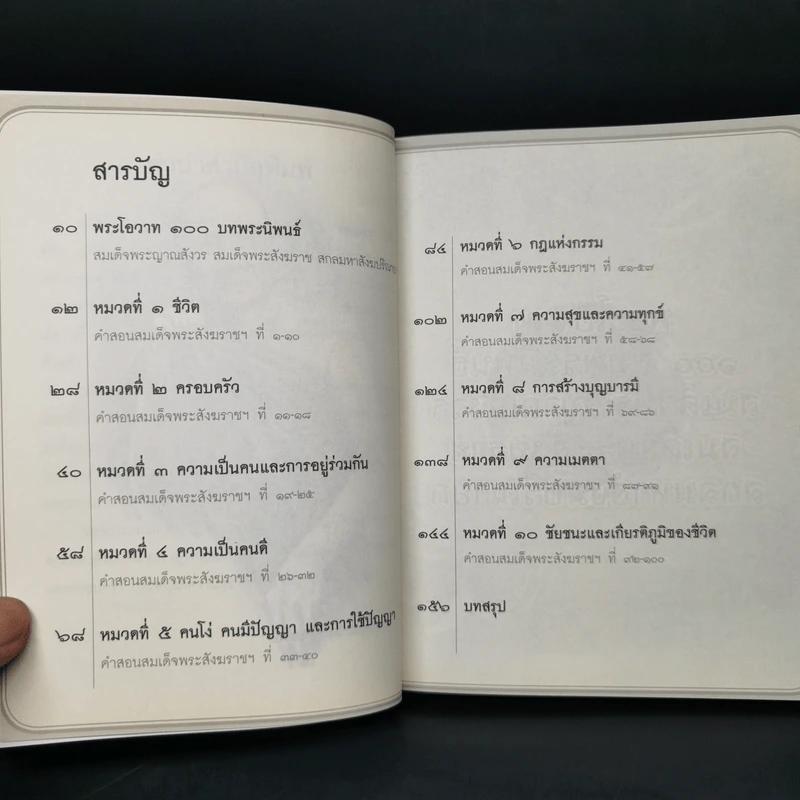 สารบัญ
๑๐ พระโอวาท ๑๐๐ บทพระนิพนธ์
สมเด็จพระญาณสังวร สมเด็จพระสังฆราช สกลมหาสังฆปริณายก
๑๒ หมวดที่ ๑ ชีวิต
คำสอนสมเด็จพระสังฆราชฯ ที่ ๑-๑๐
๒๘ หมวดที่ ๒ ครอบครัว
คำสอนสมเด็จพระสังฆราชฯ ที่ ๑๑-๑๘
๔๐ หมวดที่ ๓ ความเป็นคนและการอยู่ร่วมกัน
คำสอนสมเด็จพระสังฆราชฯ ที่ ๑๙-๒๕
๕๘ หมวดที่ ๔ ความเป็นคนดี
คำสอนสมเด็จพระสังฆราชฯ ที่ ๒๖-๓๒
๖๘ หมวดที่ ๕ คนโง่ คนมีปัญญา และการใช้ปัญญา
คำสอนสมเด็จพระสังฆราชฯ ที่ ๓๓-๔๐
๘๔ หมวดที่ ๖ กฎแห่งกรรม
คำสอนสมเด็จพระสังฆราชฯ ที่ ๔๑-๕๗
๑๐๒ หมวดที่ ๗ ความสุขและความทุกข์
คำสอนสมเด็จพระสังฆราชฯ ที่ ๕๘-๖๘
๑๒๔ หมวดที่ ๘ การสร้างบุญบารมี
คำสอนสมเด็จพระสังฆราชฯ ที่ ๖๙-๘๖
๑๓๘ หมวดที่ ๙ ความเมตตา
คำสอนสมเด็จพระสังฆราชฯ ที่ ๘๗-๙๑
๑๔๔ หมวดที่ ๑๐ ชัยชนะและเกียรติภูมิของชีวิต
คำสอนสมเด็จพระสังฆราชฯ ที่ ๙๒-๑๐๐
๑๕๖ บทสรุป